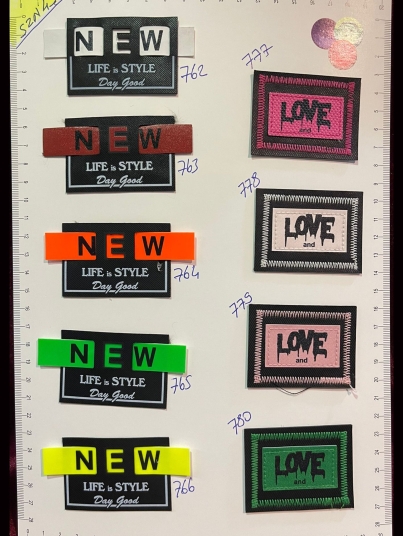 NEW
LIFE is STYLE
Day Good
762
NEW
LIFE is STYLE
Day Good
763
NEW
LIFE is STYLE
Day Good
764
NEW
LIFE is STYLE
Day Good
765
NEW
LIFE is STYLE
Day Good
766
777
LOVE
and
778
LOVE
and
779
LOVE
and
780
LOVE
and